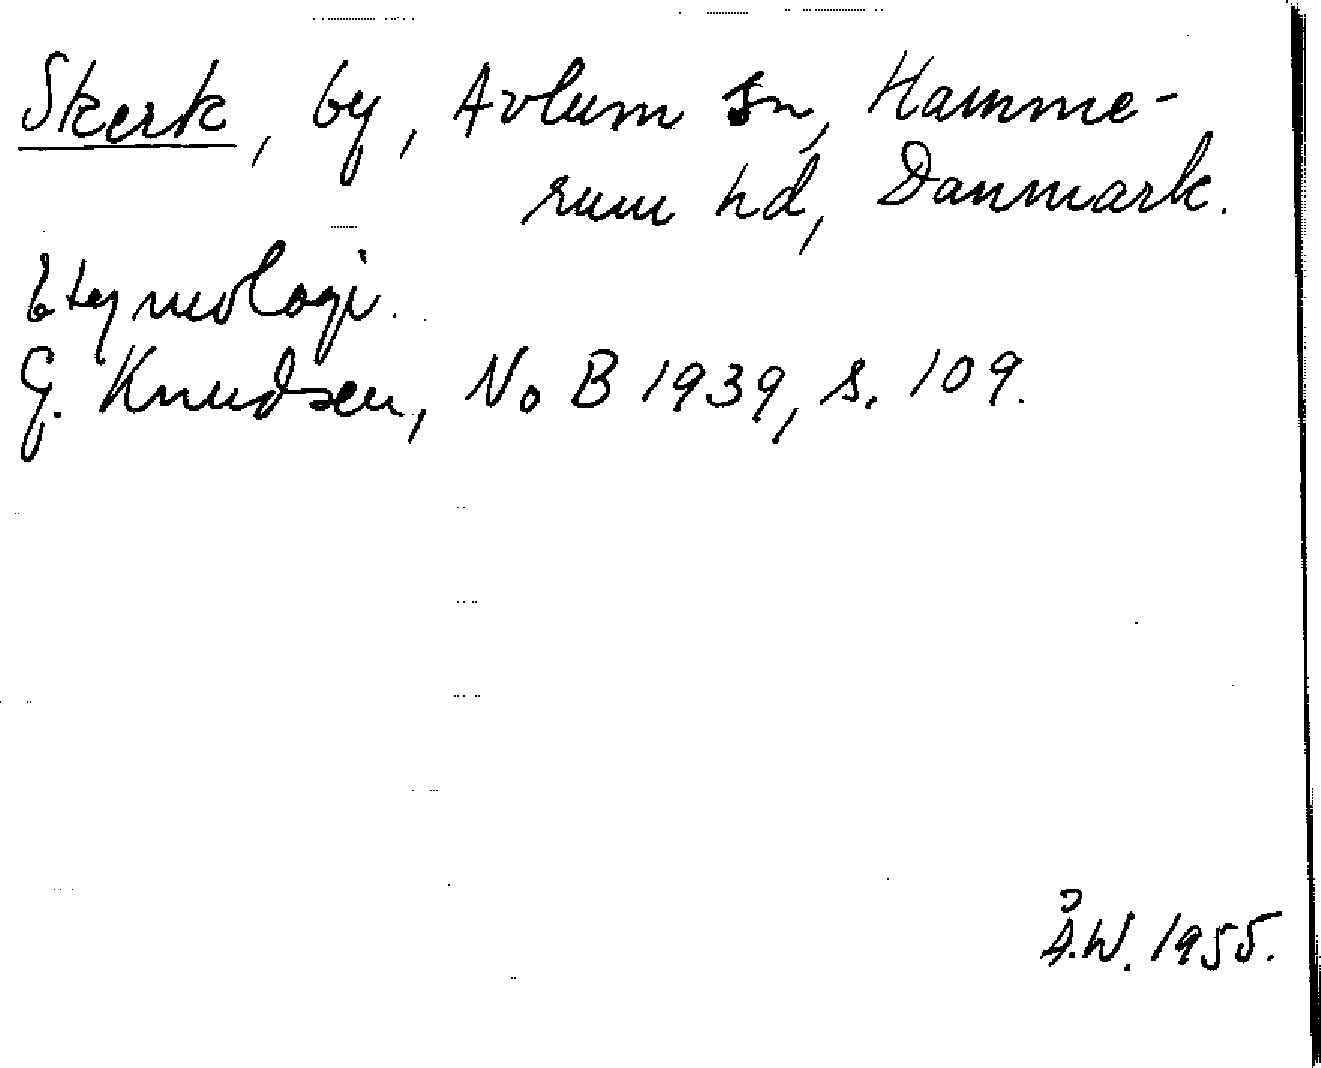 Skerk, by, Avlum sn, Hamme-
rum hd, Danmark.
Etymologi.
G. Knudsen, NoB 1939, s. 109.
Å.W. 1955.